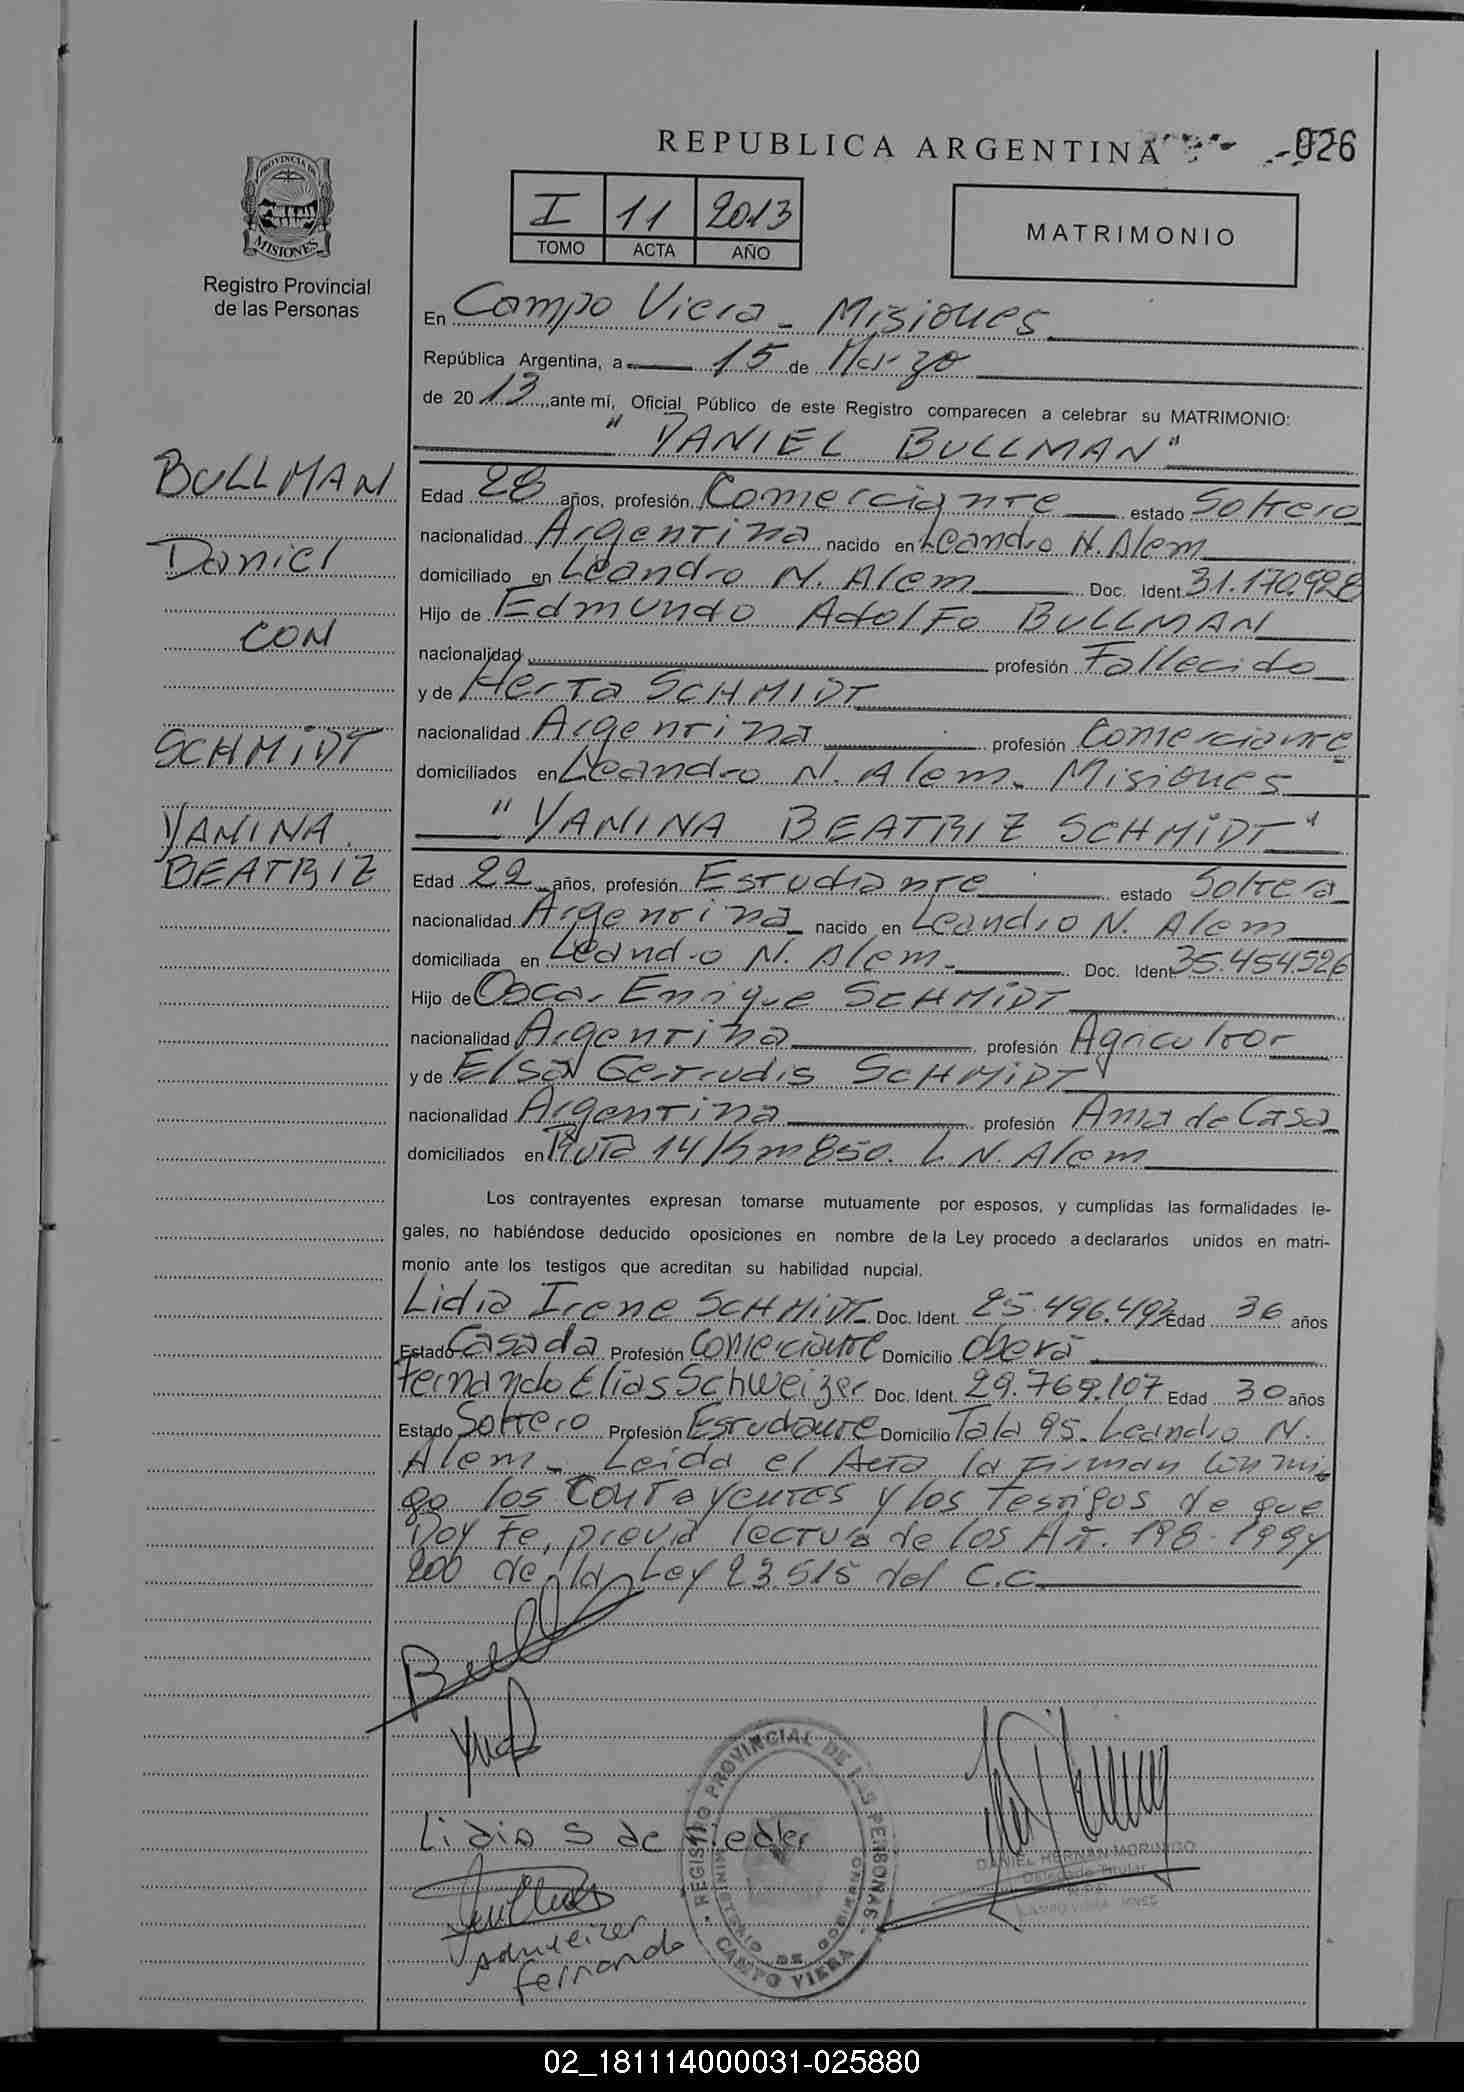 REPUBLICA ARGENTINA
026
PROVINCIA DE
MISIONES
Registro Provincial
de las Personas
I 11 2013
TOMO ACTA AÑO
MATRIMONIO
En Campo Viera - Misiones
República Argentina, a 15 de Marzo
de 20 13, ante mí, Oficial Público de este Registro comparecen a celebrar su MATRIMONIO:
"DANIEL BULLMAN"
BULLMAN
Daniel
CON
SCHMIDT
YANINA
BEATRIZ
Edad 28 años, profesión Comerciante estado Soltero
nacionalidad Argentina nacido en Leandro N. Alem
domiciliado en Leandro N. Alem Doc. Ident. 31.170.928
Hijo de Edmundo Adolfo BULLMAN
nacionalidad profesión Fallecido
y de Herta SCHMIDT
nacionalidad Argentina profesión Comerciante
domiciliados en Leandro N. Alem - Misiones
"YANINA BEATRIZ SCHMIDT"
Edad 22 años, profesión Estudiante estado Soltera
nacionalidad Argentina nacido en Leandro N. Alem
domiciliada en Leandro N. Alem - Doc. Ident 35.454.526
Hijo de Oscar Enrique SCHMIDT
nacionalidad Argentina profesión Agricultor
y de Elsa Gertrudis SCHMIDT
nacionalidad Argentina profesión Ama de Casa
domiciliados en Ruta 14 Km 850. L. N. Alem
Los contrayentes expresan tomarse mutuamente por esposos, y cumplidas las formalidades le-
gales, no habiéndose deducido oposiciones en nombre de la Ley procedo a declararlos unidos en matri-
monio ante los testigos que acreditan su habilidad nupcial.
Lidia Irene SCHMIDT Doc. Ident. 25.496.493 Edad 36 años
Estado Casada Profesión Comerciante Domicilio Oberá
Fernando Elias Schweizer Doc. Ident. 29.769.107 Edad 30 años
Estado Soltero Profesión Estudiante Domicilio Tala 95. Leandro N.
Alem - Leida el Acta la Firman conmi-
go los Contrayentes y los Testigos de que
Doy Fe, previa lectura de los Art. 198. 199 y
200 de la Ley 23.515 del C.C.
Lidia S de
Schweizer
Fernando
REGISTRO PROVINCIAL DE LAS PERSONAS
MINISTERIO DE GOBIERNO
CAMPO VIERA
DANIEL HERNAN MORINIGO
Delegado Titular
CAMPO VIERA MNES
02_181114000031-025880